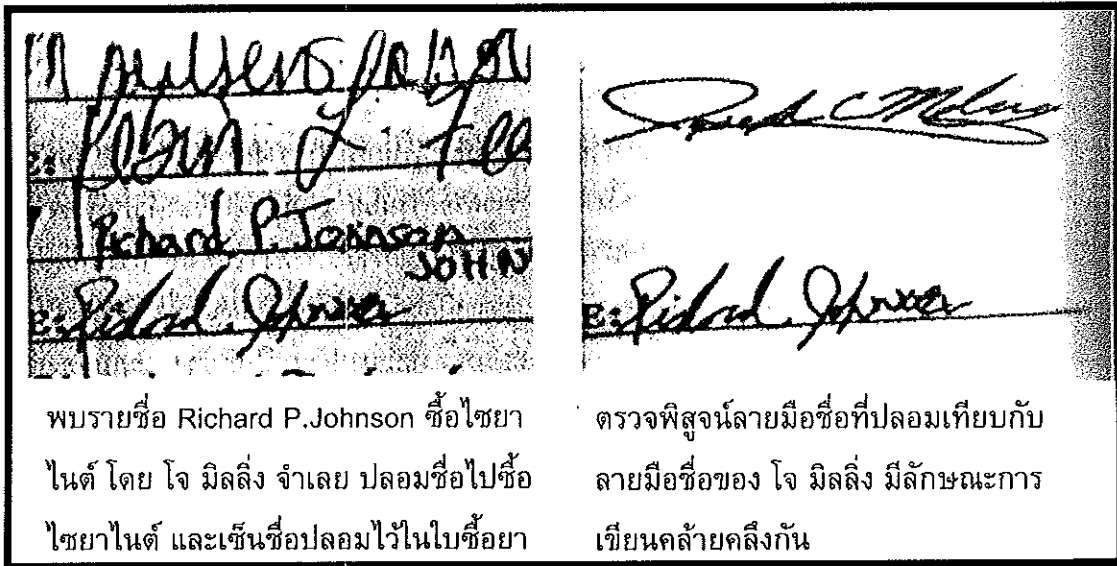 Richard P. Johnson
JOHN
E: Richard Johnson
พบรายชื่อ Richard P.Johnson ซื้อไซยา
ไนต์ โดย โจ มิลลิ่ง จำเลย ปลอมชื่อไปซื้อ
ไซยาไนต์ และเซ็นชื่อปลอมไว้ในใบซื้อยา
E: Richard Johnson
ตรวจพิสูจน์ลายมือชื่อที่ปลอมเทียบกับ
ลายมือชื่อของ โจ มิลลิ่ง มีลักษณะการ
เขียนคล้ายคลึงกัน